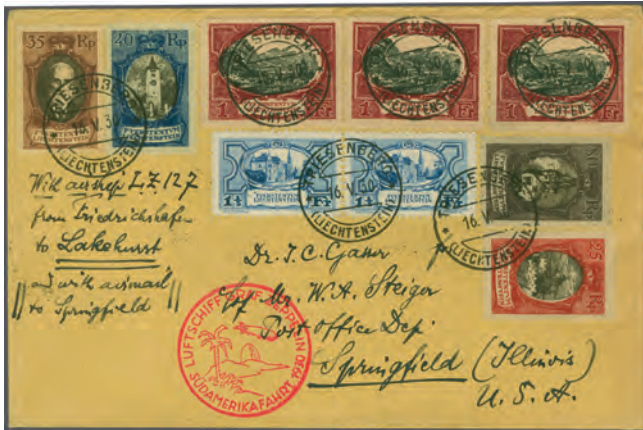 35 Rp
20 Rp
1 Fr
1 Fr
1 Fr
TRIESENBERG
(LIECHTENSTEIN)
TRIESENBERG
(LIECHTENSTEIN)
TRIESENBERG
(LIECHTENSTEIN)
TRIESENBERG
(LIECHTENSTEIN)
1 Fr
1 Fr
TRIESENBERG
16.V.30
(LIECHTENSTEIN)
TRIESENBERG
16.V
(LIECHTENSTEIN)
Rp
25 Rp
With airship L.Z. 127
from Friedrichshafen
to Lakehurst
and with airmail
to Springfield
Dr. J. C. Gasser
c/o Mr. W. A. Steiger
Post Office Dep.
Springfield (Illinois)
U. S. A.
LUFTSCHIFF GRAF ZEPPELIN
SÜDAMERIKAFAHRT 1930